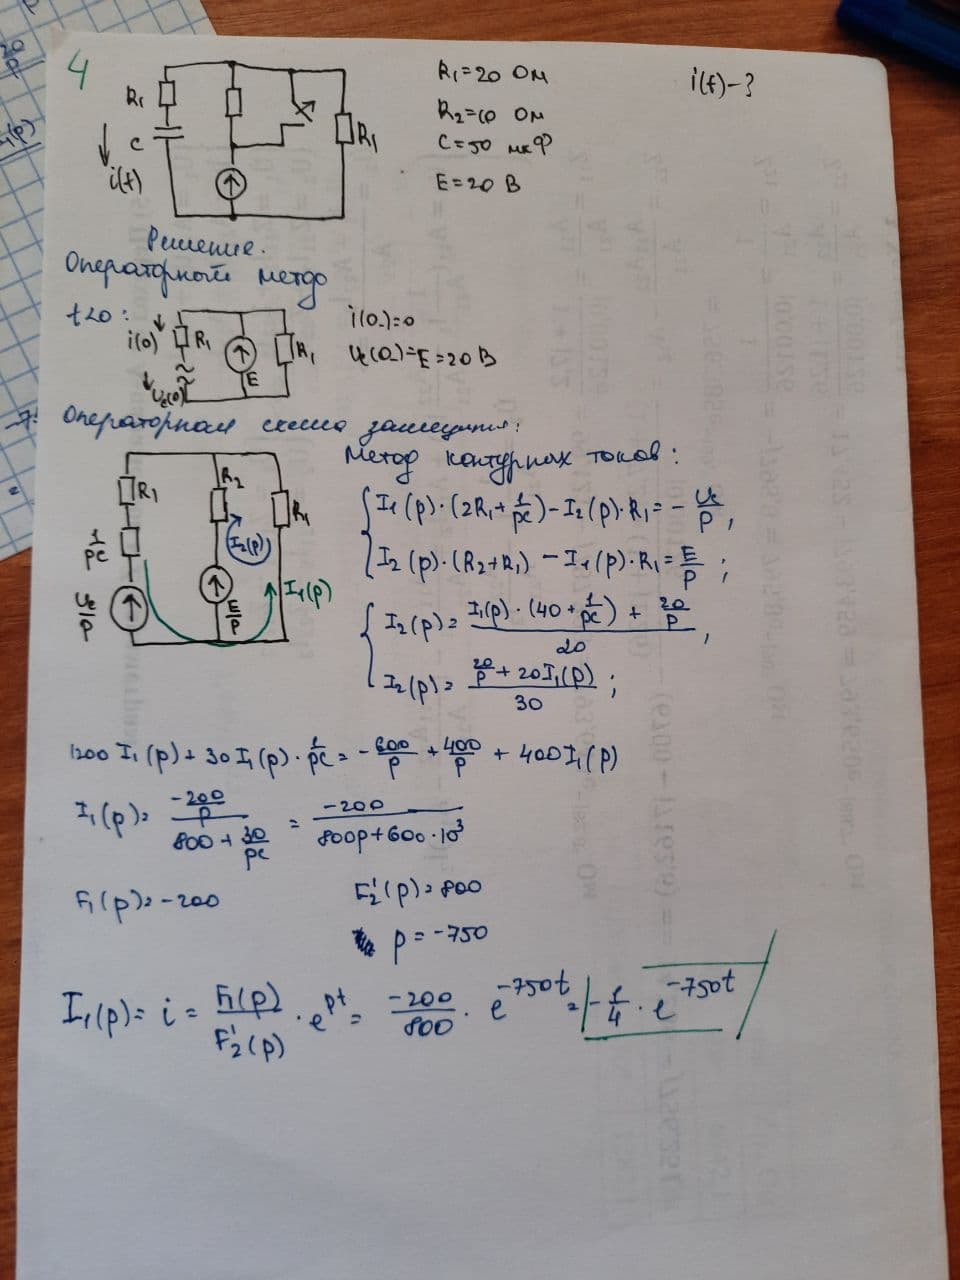 4
R₁=20 Ом
i(t)-?
R₂=10 Ом
C=50 мкФ
E=20 В
R₁
C
i(t)
R₁
Решение.
Операторный метод
t<0:
i(0)
R₁
Uc(0)
E
R₁
i(0₋)=0
Uc(0₋)=E=20 В
Операторная схема замещения:
Метод контурных токов:
R₁
1/pc
Uc/p
R₂
I₂(p)
E/p
R₁
I₁(p)
I₁(p)·(2R₁+1/pc)-I₂(p)·R₁=-Uc/p,
I₂(p)·(R₂+R₁)-I₁(p)·R₁=E/p;
I₂(p)=(I₁(p)·(40+1/pc)+20/p)/20,
I₂(p)=(20/p+20I₁(p))/30;
1200 I₁(p)+30 I₁(p)·1/pc=-600/p+400/p+400I₁(p)
I₁(p)=(-200/p)/(800+30/pc)=-200/(800p+600·10³)
F₁(p)=-200
F₂'(p)=800
p=-750
I₁(p)=i=F₁(p)/F₂'(p)·e^pt=-200/800·e^-750t=-1/4·e^-750t